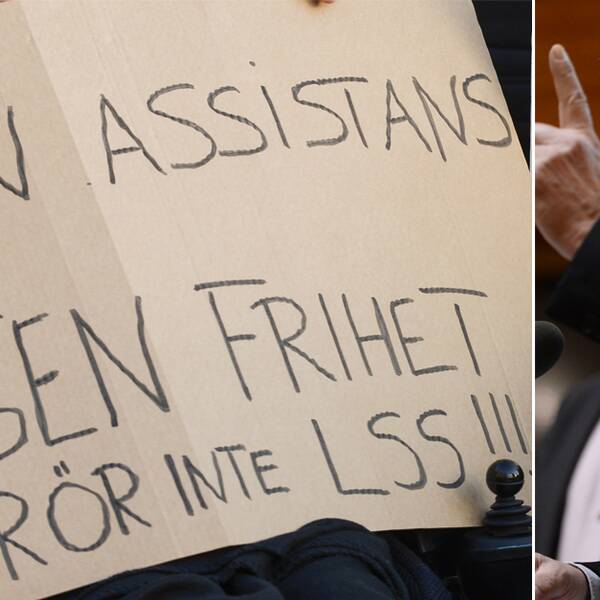 N ASSISTANS
GEN FRIHET
RÖR INTE LSS!!!